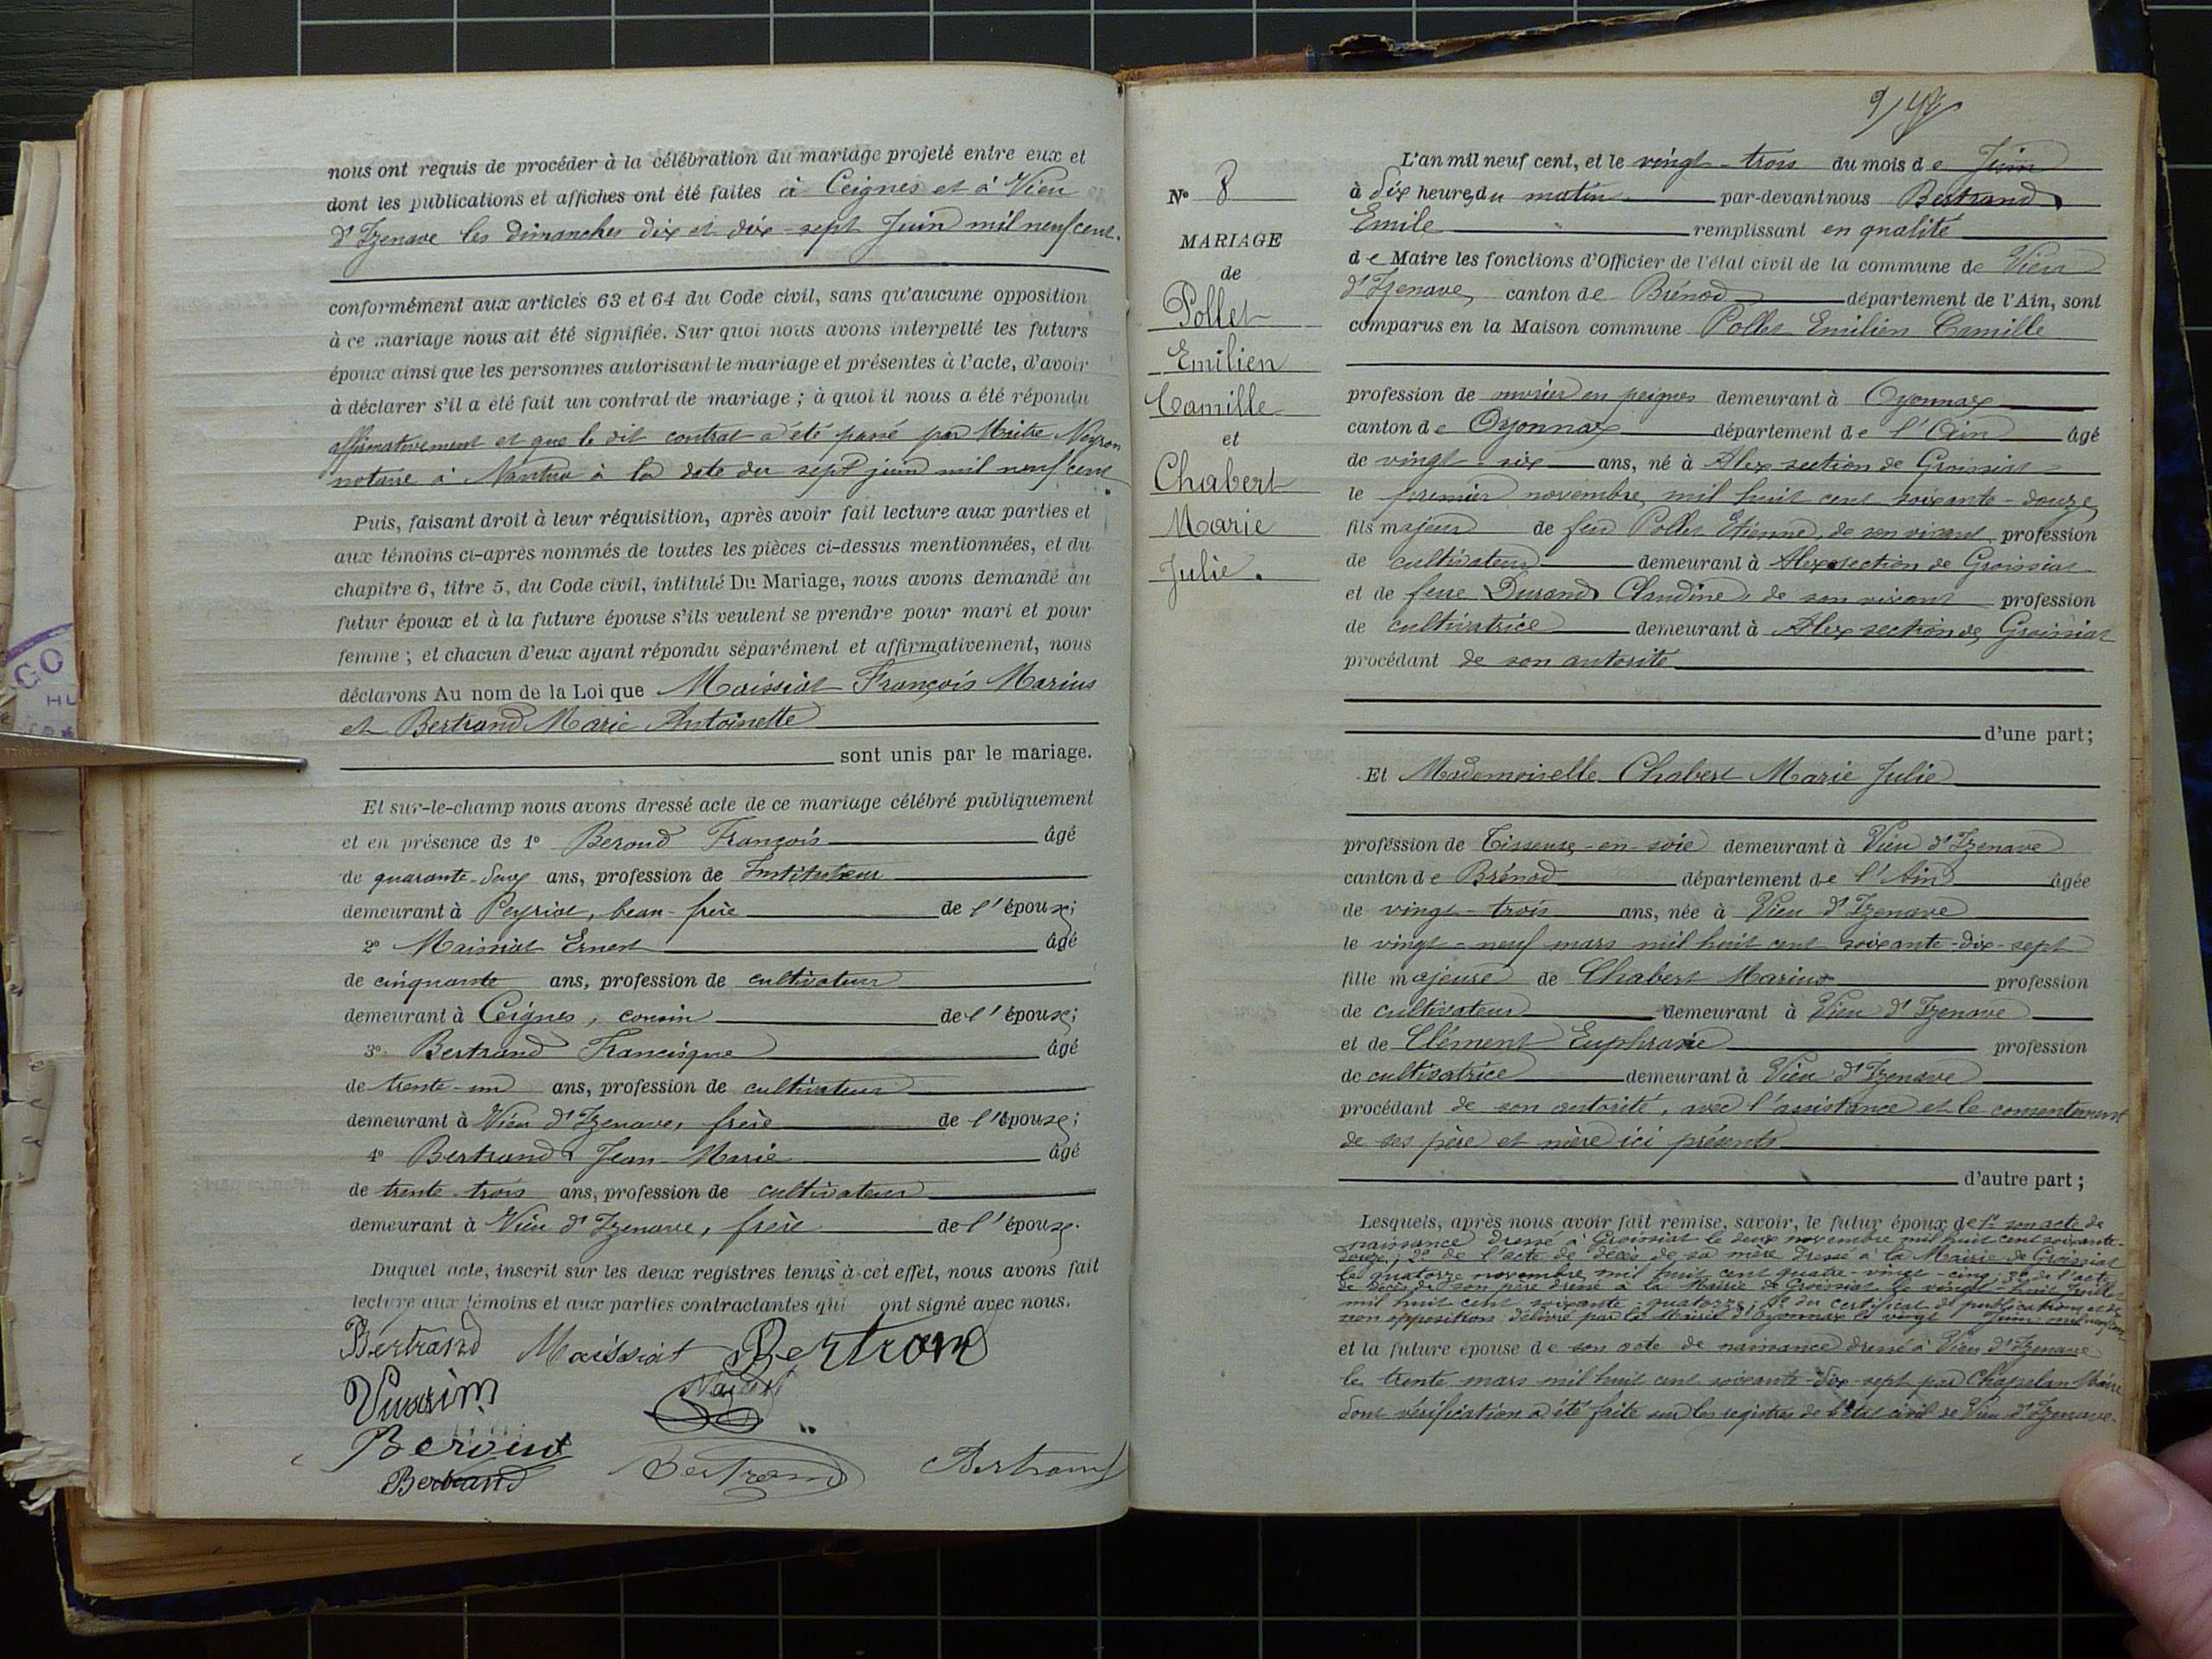 nous ont requis de procéder à la célébration du mariage projeté entre eux et
dont les publications et affiches ont été faites à Ceignes et à Vieu
d'Izenave les dimanches dix et dix-sept Juin mil neuf cent.
conformément aux articles 63 et 64 du Code civil, sans qu'aucune opposition
à ce mariage nous ait été signifiée. Sur quoi nous avons interpellé les futurs
époux ainsi que les personnes autorisant le mariage et présentes à l'acte, d'avoir
à déclarer s'il a été fait un contrat de mariage ; à quoi il nous a été répondu
affirmativement et que le dit contrat a été passé par Maître Neyron
notaire à Nantua à la date du sept juin mil neuf cent.
Puis, faisant droit à leur réquisition, après avoir fait lecture aux parties et
aux témoins ci-après nommés de toutes les pièces ci-dessus mentionnées, et du
chapitre 6, titre 5, du Code civil, intitulé Du Mariage, nous avons demandé au
futur époux et à la future épouse s'ils veulent se prendre pour mari et pour
femme ; et chacun d'eux ayant répondu séparément et affirmativement, nous
déclarons Au nom de la Loi que Maissiat François Marius
et Bertrand Marie Antoinette
sont unis par le mariage.
Et sur-le-champ nous avons dressé acte de ce mariage célébré publiquement
et en présence de 1° Beroud François âgé
de quarante-deux ans, profession de Instituteur
demeurant à Peyriat, beau-frère de l'époux;
2° Maissiat Ernest âgé
de cinquante ans, profession de cultivateur
demeurant à Ceignes, cousin de l'époux;
3° Bertrand Francisque âgé
de trente-un ans, profession de cultivateur
demeurant à Vieu d'Izenave, frère de l'épouse;
4° Bertrand Jean-Marie âgé
de trente-trois ans, profession de cultivateur
demeurant à Vieu d'Izenave, frère de l'épouse.
Duquel acte, inscrit sur les deux registres tenus à cet effet, nous avons fait
lecture aux témoins et aux parties contractantes qui ont signé avec nous.
Bertrand Maissiat Bertrand
Vuarin
Beroud
Bertrand Bertrand Bertrand
N° 8
MARIAGE
de
Pollet
Emilien
Camille
et
Chabert
Marie
Julie.
L'an mil neuf cent, et le vingt-trois du mois de Juin
à dix heures du matin par-devant nous Bertrand
Emile remplissant en qualité
de Maire les fonctions d'Officier de l'état civil de la commune de Vieu
d'Izenave, canton de Brénod département de l'Ain, sont
comparus en la Maison commune Pollet Emilien Camille
profession de ouvrier en peignes demeurant à Oyonnax
canton de Oyonnax département de l'Ain âgé
de vingt-six ans, né à Alex section de Groissiat
le premier novembre mil huit cent soixante-douze
fils majeur de feu Pollet Etienne, de son vivant profession
de cultivateur demeurant à Alex section de Groissiat
et de feue Durand Claudine de son vivant profession
de cultivatrice demeurant à Alex section de Groissiat
procédant de son autorité
d'une part;
Et Mademoiselle Chabert Marie Julie
profession de Tisseuse-en-soie demeurant à Vieu d'Izenave
canton de Brénod département de l'Ain âgée
de vingt-trois ans, née à Vieu d'Izenave
le vingt-neuf mars mil huit cent soixante-dix-sept
fille majeure de Chabert Marius profession
de cultivateur demeurant à Vieu d'Izenave
et de Clément Euphrasie profession
de cultivatrice demeurant à Vieu d'Izenave
procédant de son autorité, avec l'assistance et le consentement
de ses père et mère ici présents
d'autre part;
Lesquels, après nous avoir fait remise, savoir, le futur époux de 1° son acte de
naissance dressé à Groissiat le deux novembre mil huit cent soixante-
douze; 2° de l'acte de décès de sa mère dressé à la Mairie de Groissiat
le quatorze novembre mil huit cent quatre-vingt-cinq; 3° de l'acte
de décès de son père dressé à la Mairie de Groissiat le vingt-huit Juillet
mil huit cent soixante-quatorze; 4° du certificat de publications et de
non opposition délivré par la Mairie d'Oyonnax le vingt Juin mil neuf cent
et la future épouse de son acte de naissance dressé à Vieu d'Izenave
le trente mars mil huit cent soixante-dix-sept par Chapelan Maire
dont vérification a été faite sur les registres de l'état civil de Vieu d'Izenave.